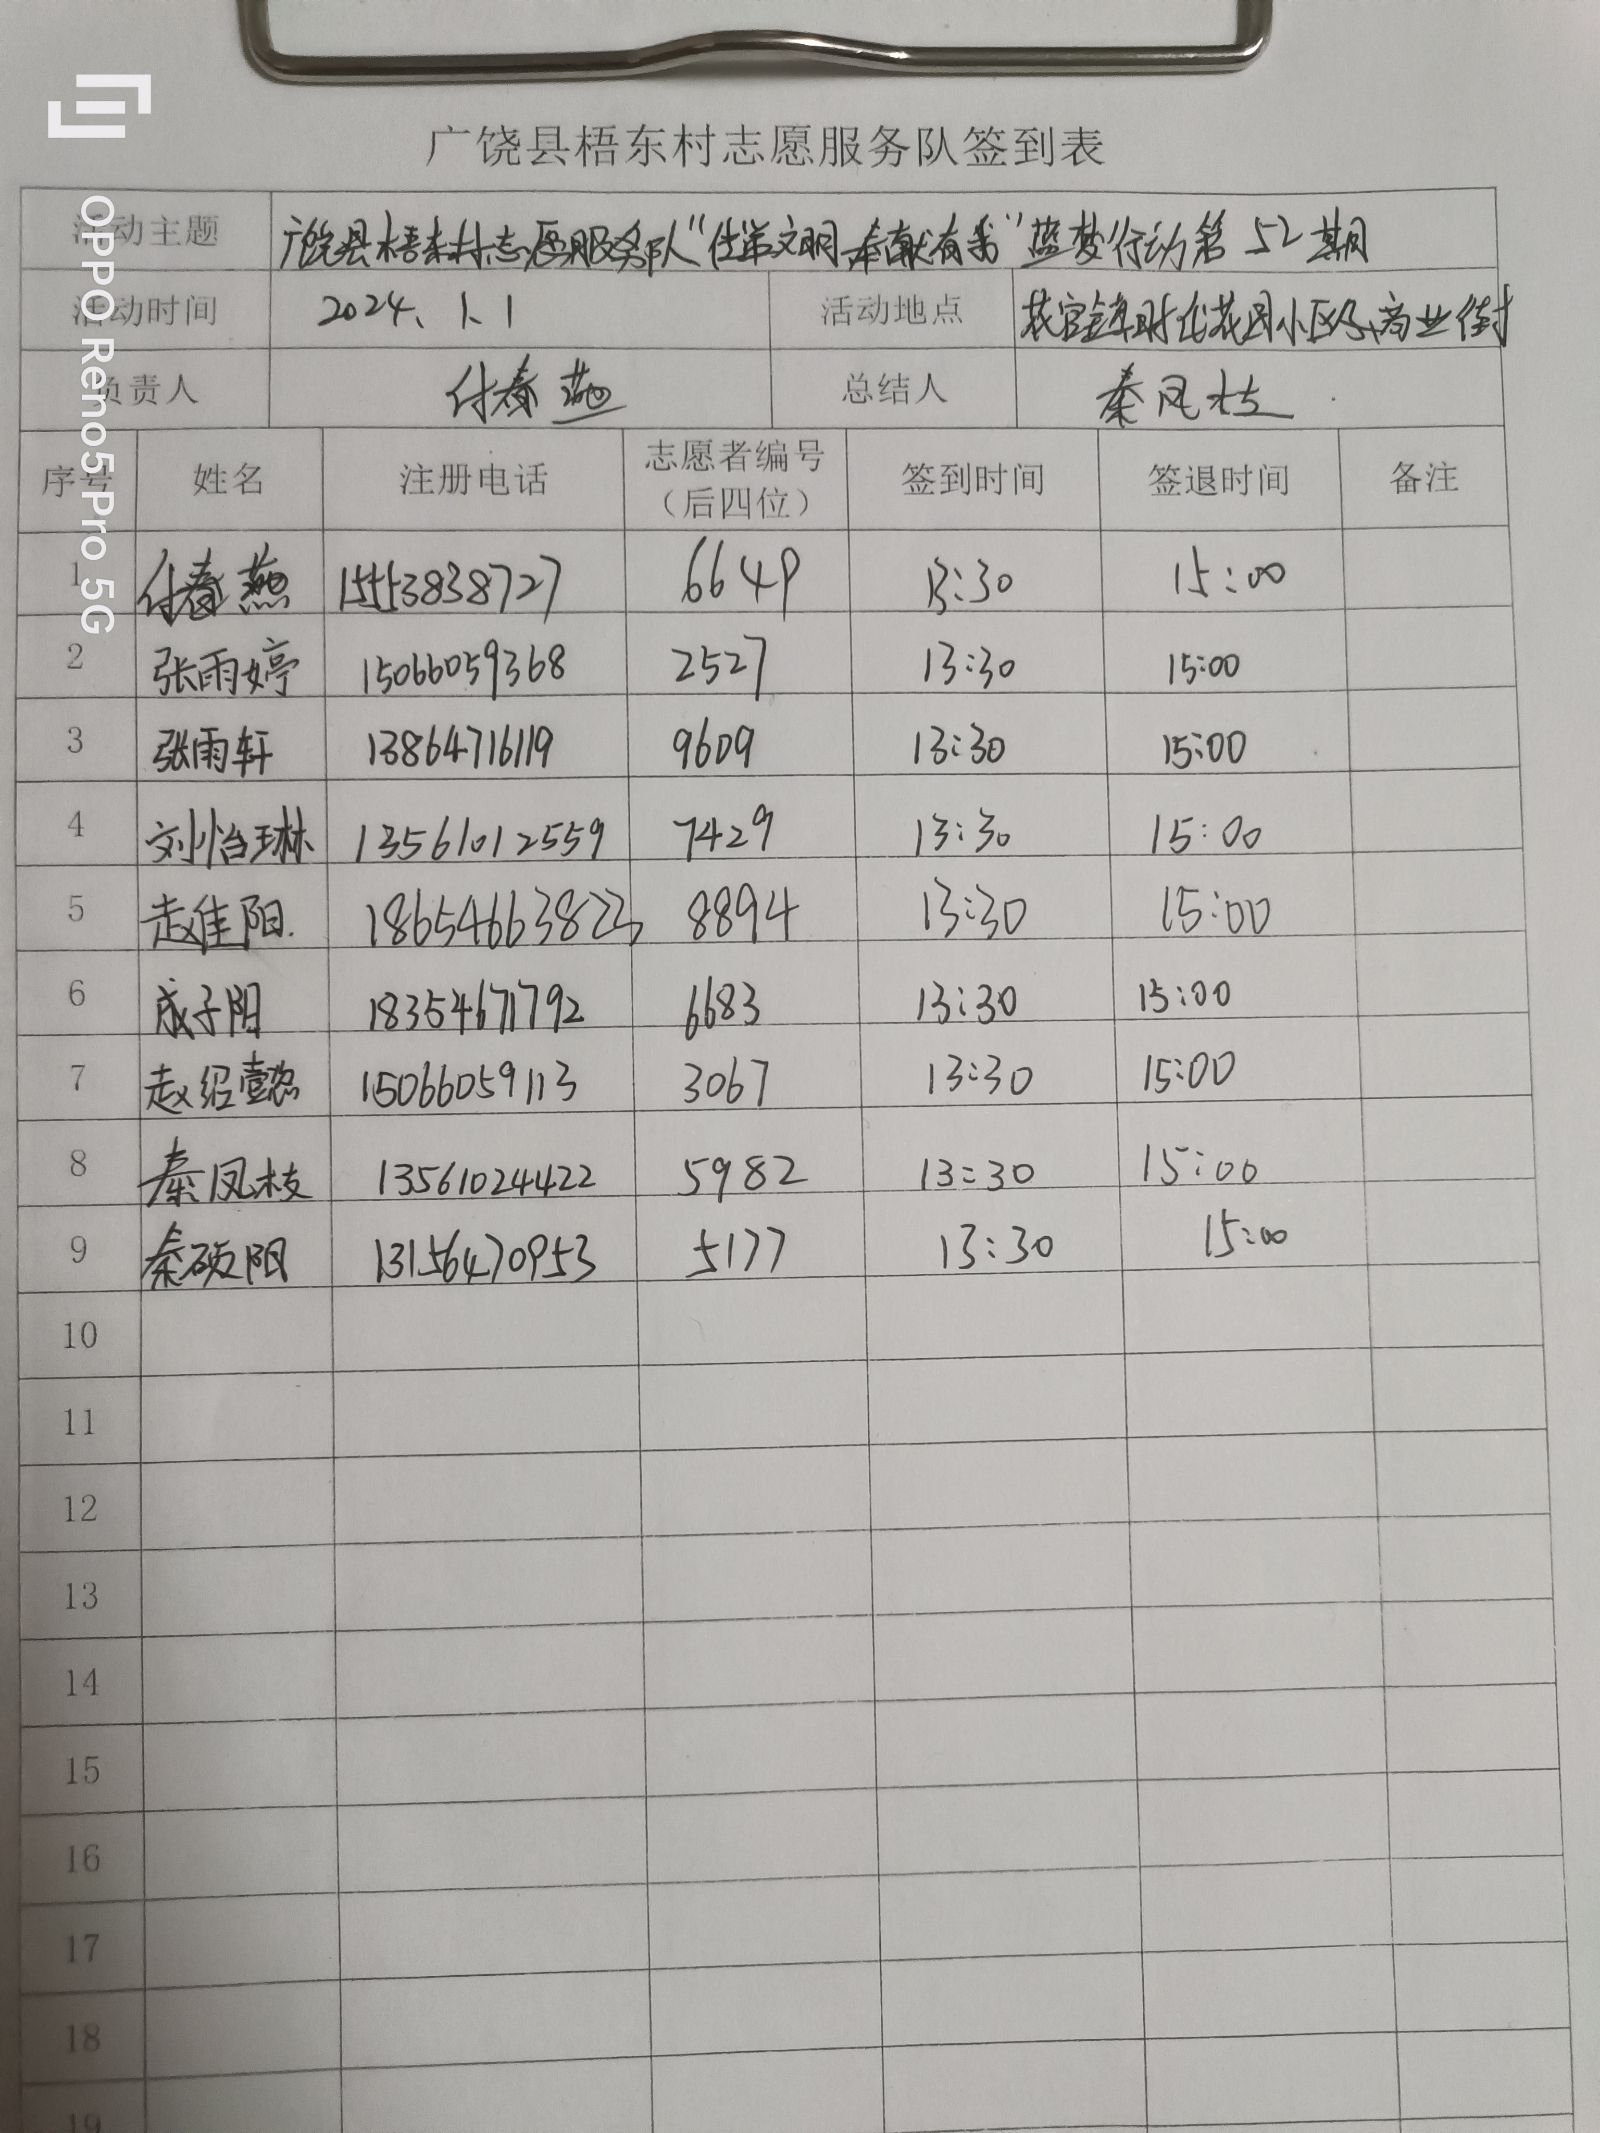 广饶县梧东村志愿服务队签到表
活动主题 广饶县梧东村志愿服务队“仕第文明 奉献有我”蓝梦行动第52期
活动时间 2024、1、1 活动地点 花官镇时代花园小区及商业街
负责人 付春燕 总结人 秦凤枝
序号 姓名 注册电话 志愿者编号（后四位） 签到时间 签退时间 备注
1 付春燕 15553838727 6649 13:30 15:00
2 张雨婷 15066059368 2527 13:30 15:00
3 张雨轩 13864716119 9609 13:30 15:00
4 刘怡琳 13561012559 7429 13:30 15:00
5 赵佳阳 18654663823 8894 13:30 15:00
6 成子阳 18354671792 6683 13:30 15:00
7 赵绍懿 15066059113 3067 13:30 15:00
8 秦凤枝 13561024422 5982 13:30 15:00
9 秦硕阳 13156470953 5177 13:30 15:00
10
11
12
13
14
15
16
17
18
19
OPPO Reno5 Pro 5G